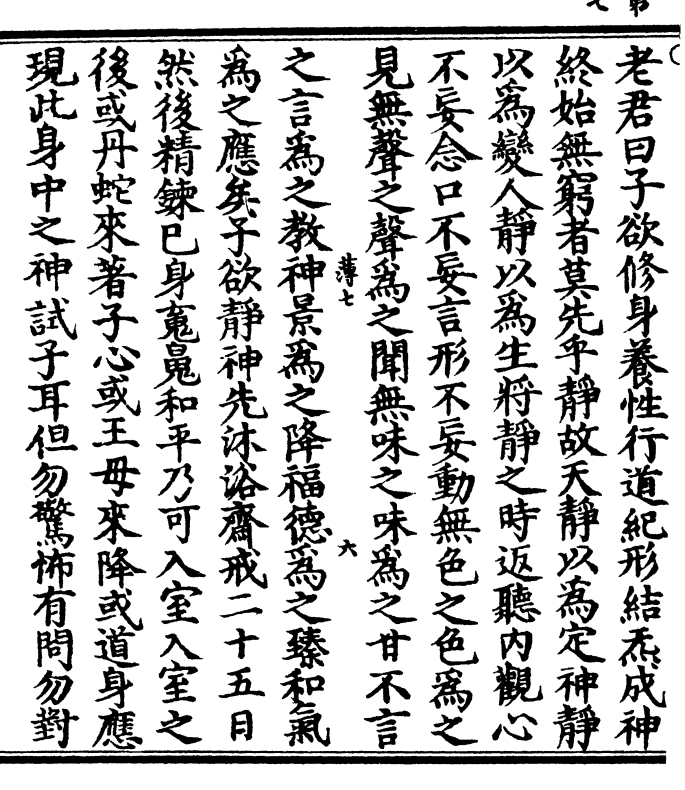 老君曰子欲修身養性行道紀形結炁成神
終始無窮者莫先乎靜故天靜以為定神靜
以為變人靜以為生將靜之時返聽內觀心
不妄念口不妄言形不妄動無色之色為之
見無聲之聲為之聞無味之味為之甘不言
薄七
六
之言為之教神景為之降福德為之臻和氣
為之應矣子欲靜神先沐浴齋戒二十五日
然後精鍊巳身䰟鬼和平乃可入室入室之
後或丹蛇來著子心或王母來降或道身應
現此身中之神試子耳但勿驚怖有問勿對